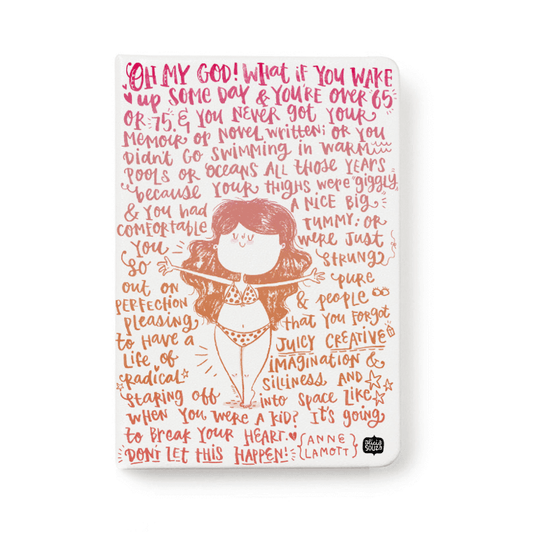 OH MY GOD! WHAT IF YOU WAKE
UP SOME DAY & YOU'RE OVER 65
OR 75, & YOU NEVER GOT YOUR
MEMOIR OR NOVEL WRITTEN; OR YOU
DIDN'T GO SWIMMING IN WARM
POOLS OR OCEANS ALL THOSE YEARS
because YOUR THIGHS WERE GIGGLY,
& YOU HAD A NICE BIG
COMFORTABLE TUMMY; OR
YOU WERE JUST
SO STRUNG
OUT ON PURE
PERFECTION & PEOPLE
PLEASING that YOU FORGOT
to HAVE A JUICY CREATIVE
LIFE OF IMAGINATION &
RADICAL SILLINESS AND
STARING OFF INTO SPACE LIKE
WHEN YOU WERE A KID? IT'S GOING
to BREAK YOUR HEART.
DON'T LET THIS HAPPEN! {ANNE LAMOTT}
alicia souza